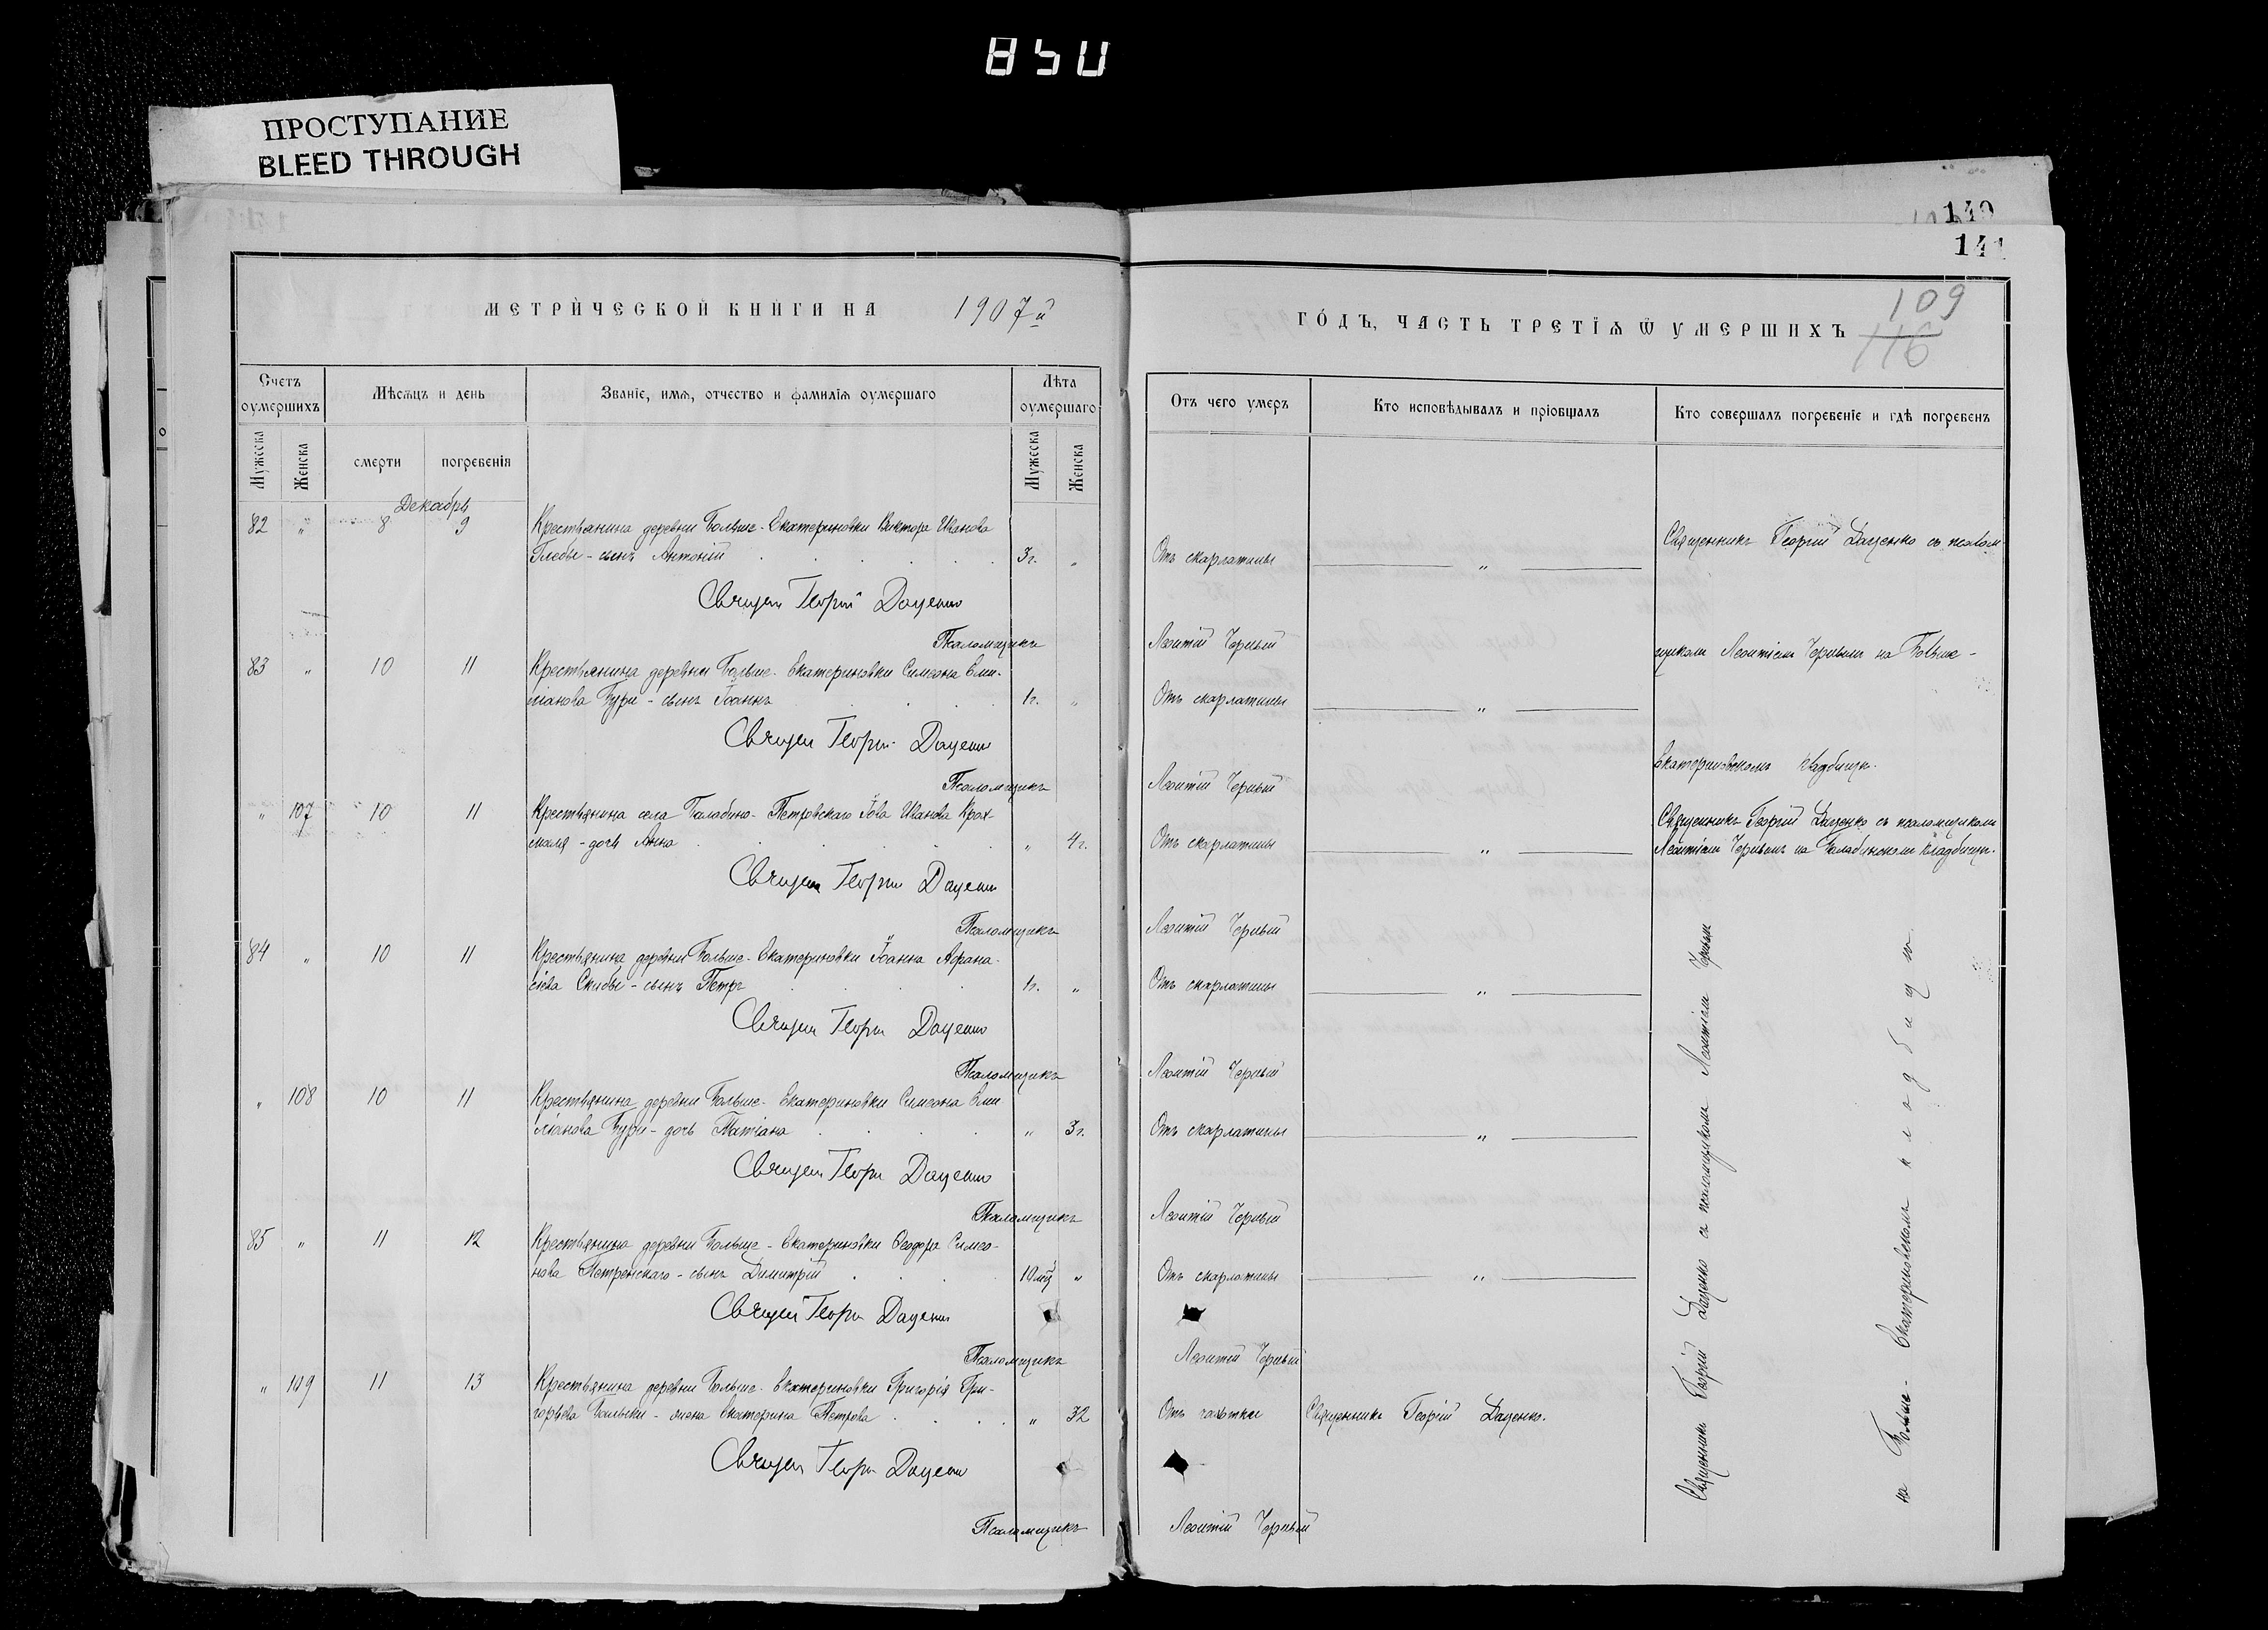 850
ПРОСТУПАНИЕ
BLEED THROUGH
140
141
МЕТРИЧЕСКОЙ КНИГИ НА 1907й
ГОДЪ, ЧАСТЬ ТРЕТІЯ Ѿ УМЕРШИХЪ
109
116
Счетъ оумершихъ
Мѣсяцъ и день
Званіе, имя, отчество и фамилія оумершаго
Лѣта оумершаго
Отъ чего умеръ
Кто исповѣдывалъ и пріобщалъ
Кто совершалъ погребеніе и гдѣ погребенъ
Мужеска
Женска
смерти
погребенія
Мужеска
Женска
Декабрь
82 " 8 9 Крестьянина деревни Больше-Екатериновки Виктора Иванова
Глебы - сынъ Антоній 3г. " Отъ скарлатины "
Священникъ Георгій Даценко съ псалом-
Священ Георгій Даценко
Псаломщикъ Леонтій Черный
щикомъ Леонтіемъ Чернымъ на Больше-
83 " 10 11 Крестьянина деревни Больше-Екатериновки Симеона Еми-
ліанова Бури - сынъ Іоаннъ 1г. " Отъ скарлатины "
Священ Георгій Даценко
Екатериновскомъ кладбищѣ.
Псаломщикъ Леонтій Черный
" 107 10 11 Крестьянина села Балабино-Петровскаго Іова Иванова Крох-
маля - дочь Анна " 4г. Отъ скарлатины "
Священникъ Георгій Даценко съ псаломщикомъ
Леонтіемъ Чернымъ на Балабинскомъ кладбищѣ.
Священ Георгій Даценко
Псаломщикъ Леонтій Черный
84 " 10 11 Крестьянина деревни Больше-Екатериновки Іоанна Афана-
сіева Скибы - сынъ Петръ 1г. " Отъ скарлатины "
Священ Георгій Даценко
Псаломщикъ Леонтій Черный
" 108 10 11 Крестьянина деревни Больше-Екатериновки Симеона Еми
ліанова Бури - дочь Татіана " 3г. Отъ скарлатины "
Священ Георгій Даценко
Псаломщикъ Леонтій Черный
85 " 11 12 Крестьянина деревни Больше-Екатериновки Ѳеодора Симео-
нова Петренскаго - сынъ Димитрій 10мц " Отъ скарлатины "
Священ Георгій Даценко
Псаломщикъ Леонтій Черный
" 109 11 13 Крестьянина деревни Больше-Екатериновки Григорія Гри-
горьева - жена Екатерина Петрова " 32 Отъ чахотки Священникъ Георгій Даценко.
Священ Георгій Даценко
Псаломщикъ Леонтій Черный
Священникъ Георгій Даценко съ псаломщикомъ Леонтіемъ Чернымъ
на Больше-Екатериновскомъ кладбищѣ